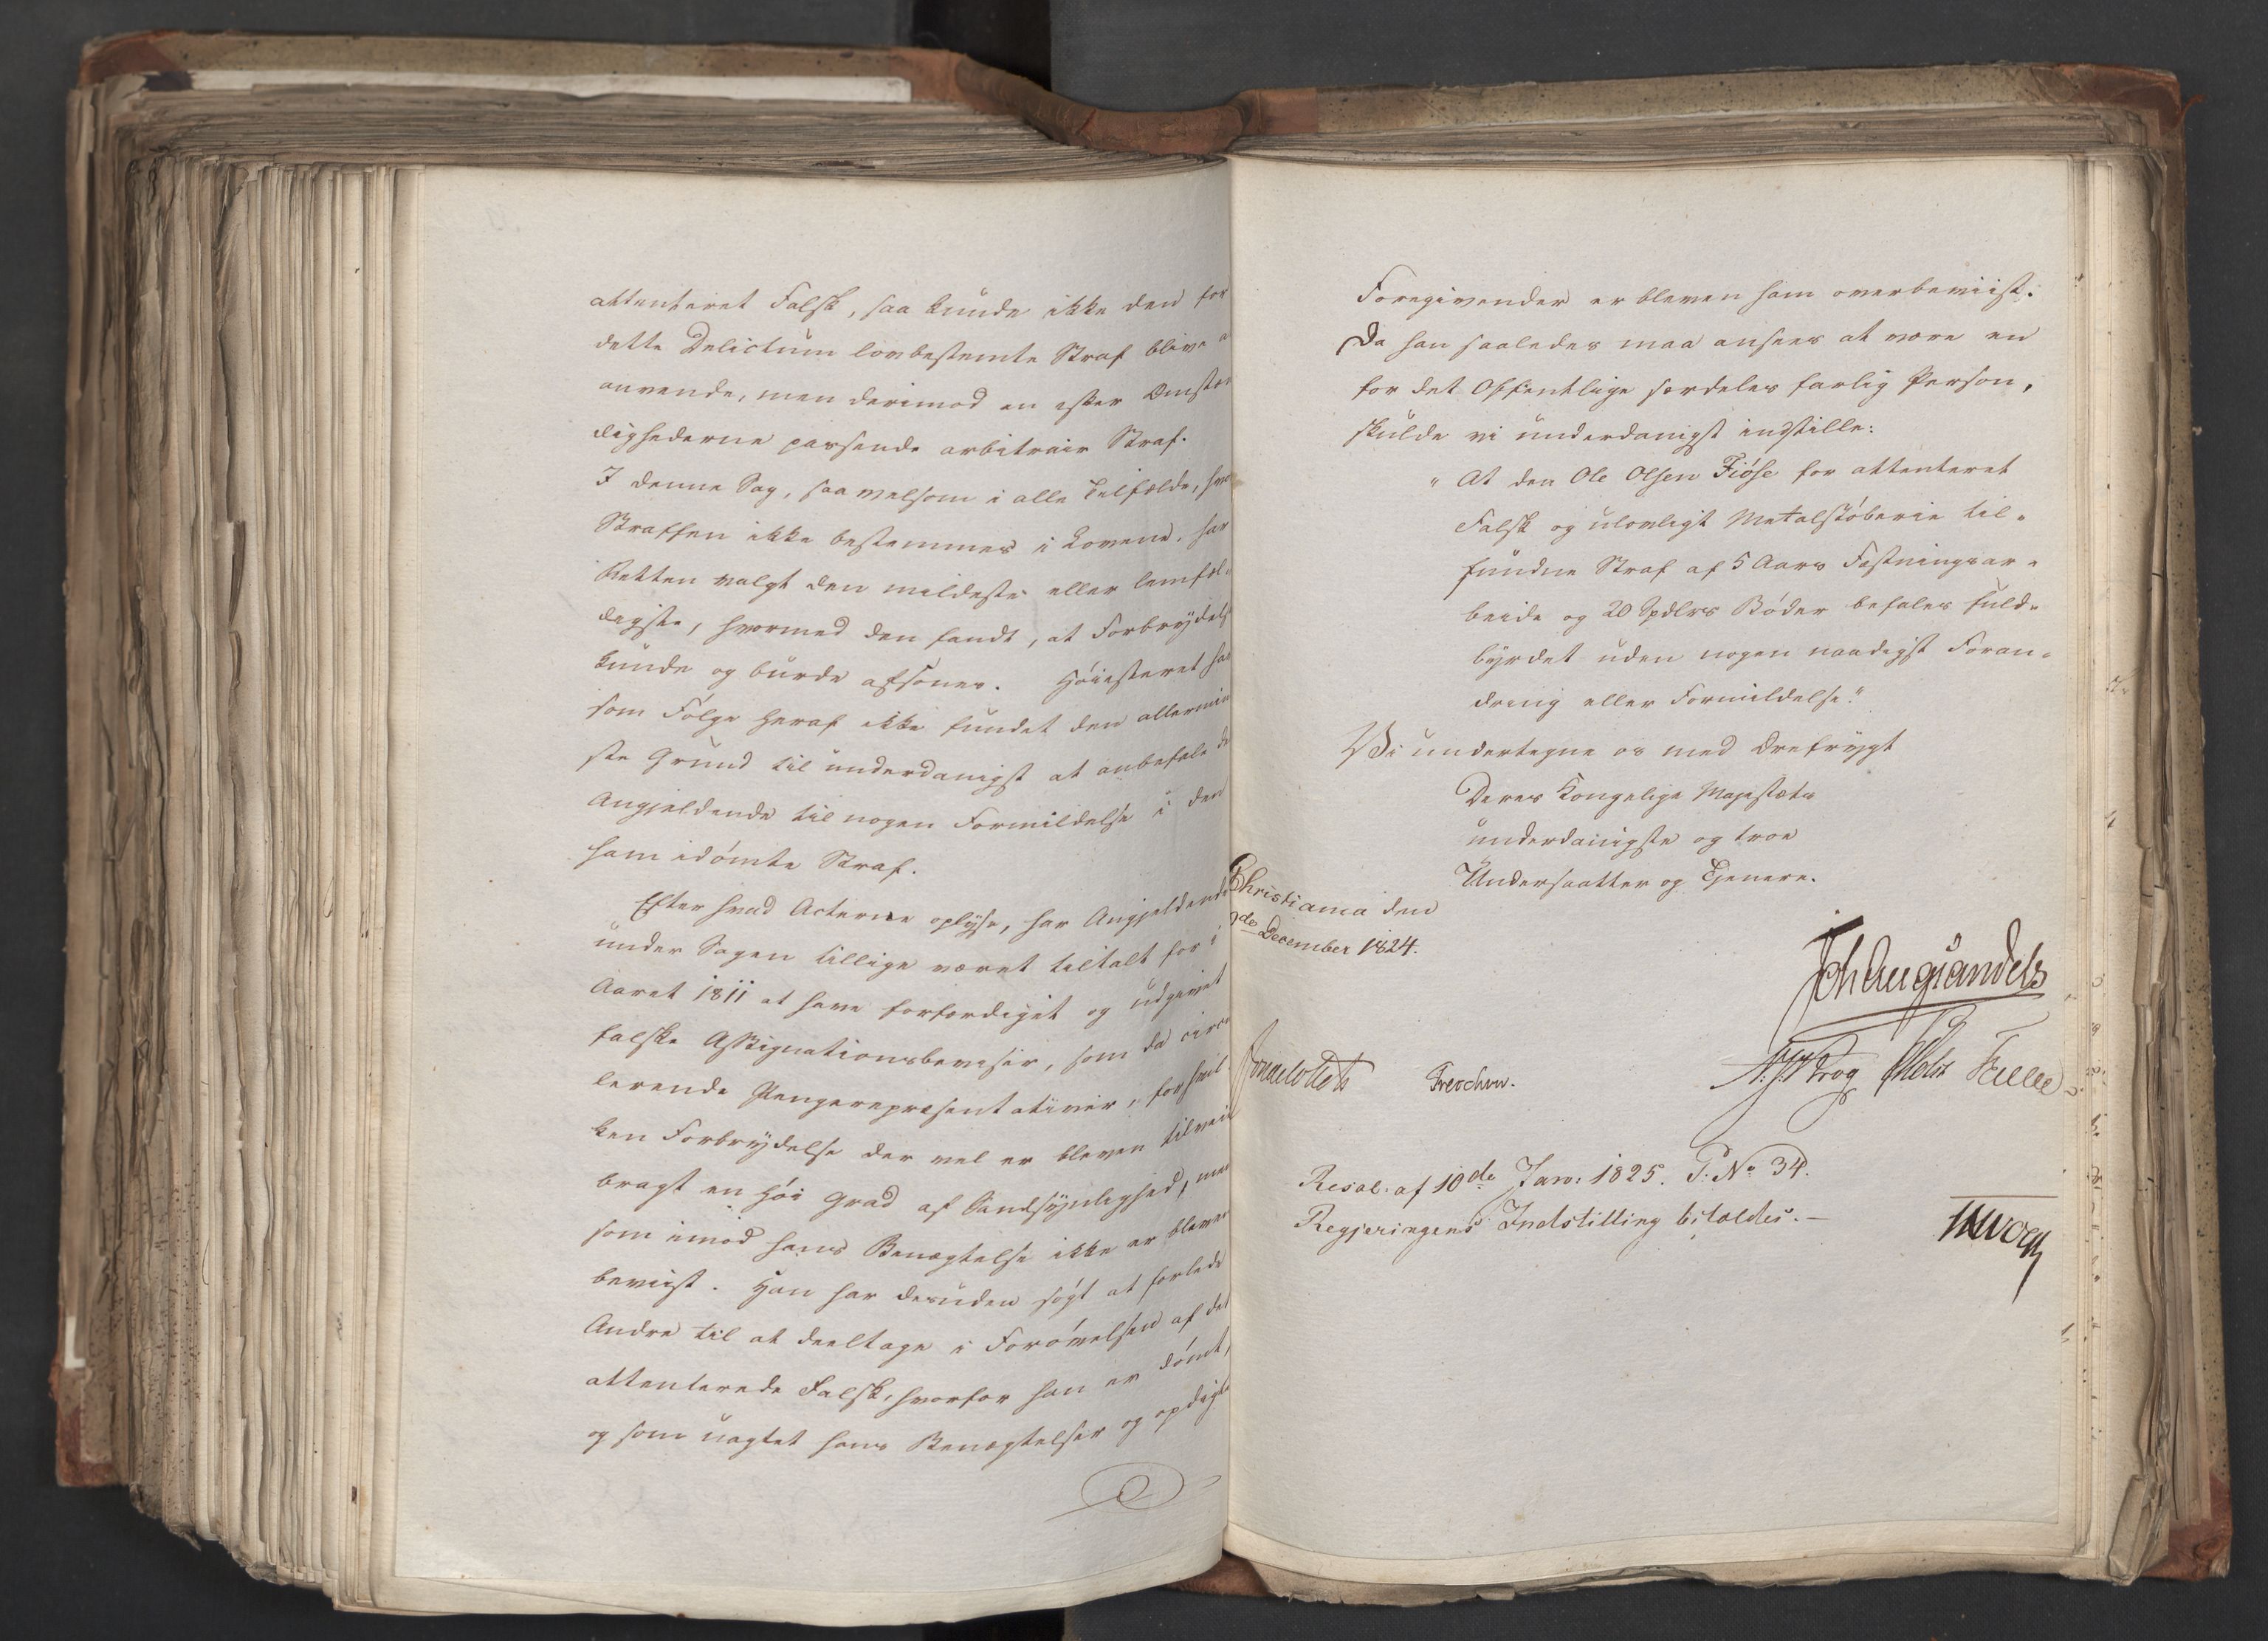 attenteret Falsk, saa kunde ikke den for
dette Delictum lovbestemte Straf blive a
anvende, men derimod en efter Omstæn
dighederne passende arbitrair Straf.
I denne Sag, saavelsom i alle Tilfælde, hvo
Straffen ikke bestemmes i Lovene, har
Retten valgt den mildeste eller lemfæl-
digste, hvormed den fandt, at Forbrydels
kunde og burde afsones. Höiesteret har
som Fölge heraf ikke fundet den allermin
ste Grund til underdanigst at anbefale de
Angjeldende til nogen Formildelse i den
ham idömte Straf.
Efter hvad Acterne oplyse, har Angjeldende
under Sagen tillige været tiltalt for i
Aaret 1811 at have forfærdiget og udgivet
falske Assignationsbeviser, som da circu
lerende Pengerepræsentativer, for hvil
ken Forbrydelse der vel er bleven tilveie
bragt en höi Grad af Sandsynlighed, men
som imod hans Benægtelse ikke er bleven
beviist. Han har desuden sögt at forlede
Andre til at deeltage i Forövelsen af det
attenterede Falsk, hvorfor han er dömt,
og som uagtet hans Benægtelser og opdigte
Foregivender er bleven ham overbeviist.
Da han saaledes maa ansees at være en
for det Offentlige særdeles farlig Person,
skulde vi underdanigst indstille:
"At den Ole Olsen Fiöse for attenteret
Falsk og ulovligt Metalstöberie til-
fundne Straf af 5 Aars Fæstningsar-
beide og 20 Spdlrs Böder befales fuld-
byrdet uden nogen naadigst Foran-
dring eller Formildelse."
Vi undertegne os med Ærefrygt
Deres Kongelige Majestæts
underdanigste og troe
Undersaatter og Tjenere.
Christiania den
de December 1824.
Joh Aug Sandels
Jonas Collett Treschow. Krog Motz Fasting
Resol. af 10de Janv: 1825. P. No 34.
Regjeringens Indstilling bifaldes. —